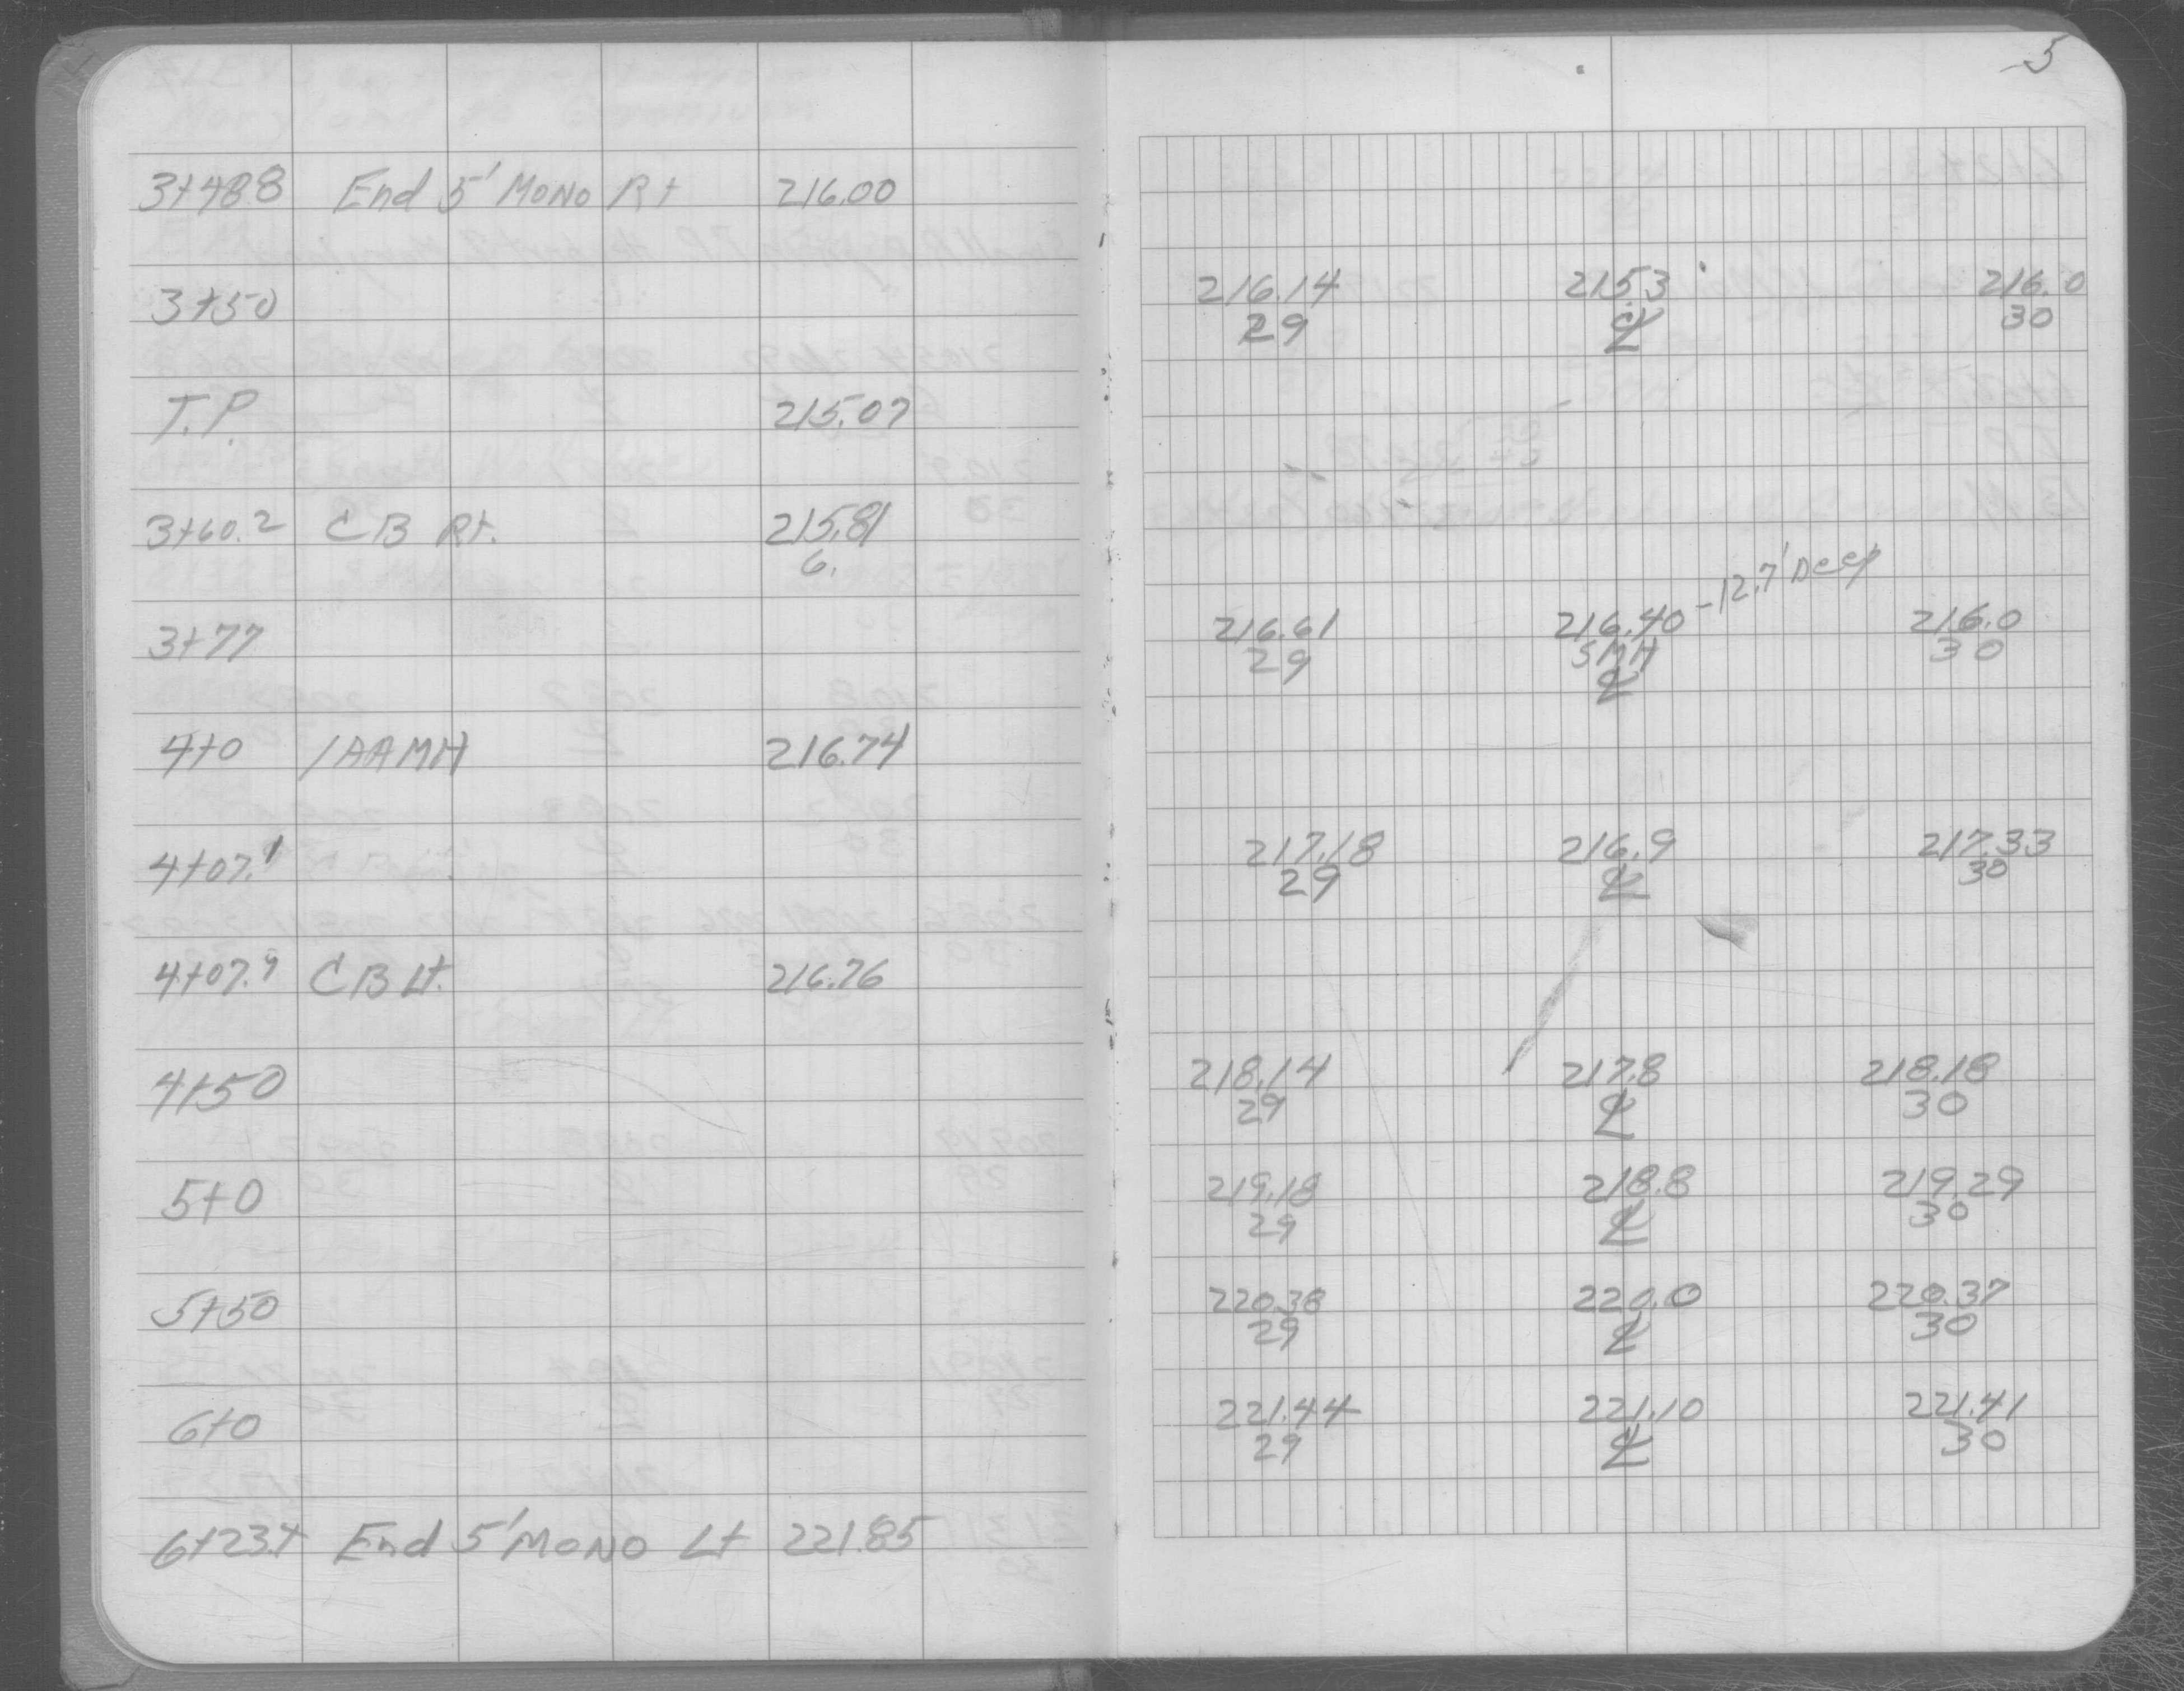 5
3+48.8 End 5' MONO Rt 216.00
3+50 216.14 215.3 216.0
29 ℄ 30
T.P. 215.07
3+60.2 CB Rt. 215.81
6.
-12.7' Deep
3+77 216.61 216.40 216.0
29 SMH 30
℄
4+0 1AAMH 216.74
4+07.1 217.18 216.9 217.33
29 ℄ 30
4+07.9 CB Lt. 216.76
4+50 218.14 217.8 218.18
29 ℄ 30
5+0 219.18 218.8 219.29
29 ℄ 30
5+50 220.38 220.0 220.37
29 ℄ 30
6+0 221.44 221.10 221.41
29 ℄ 30
6+23.4 End 5' MONO Lt 221.85